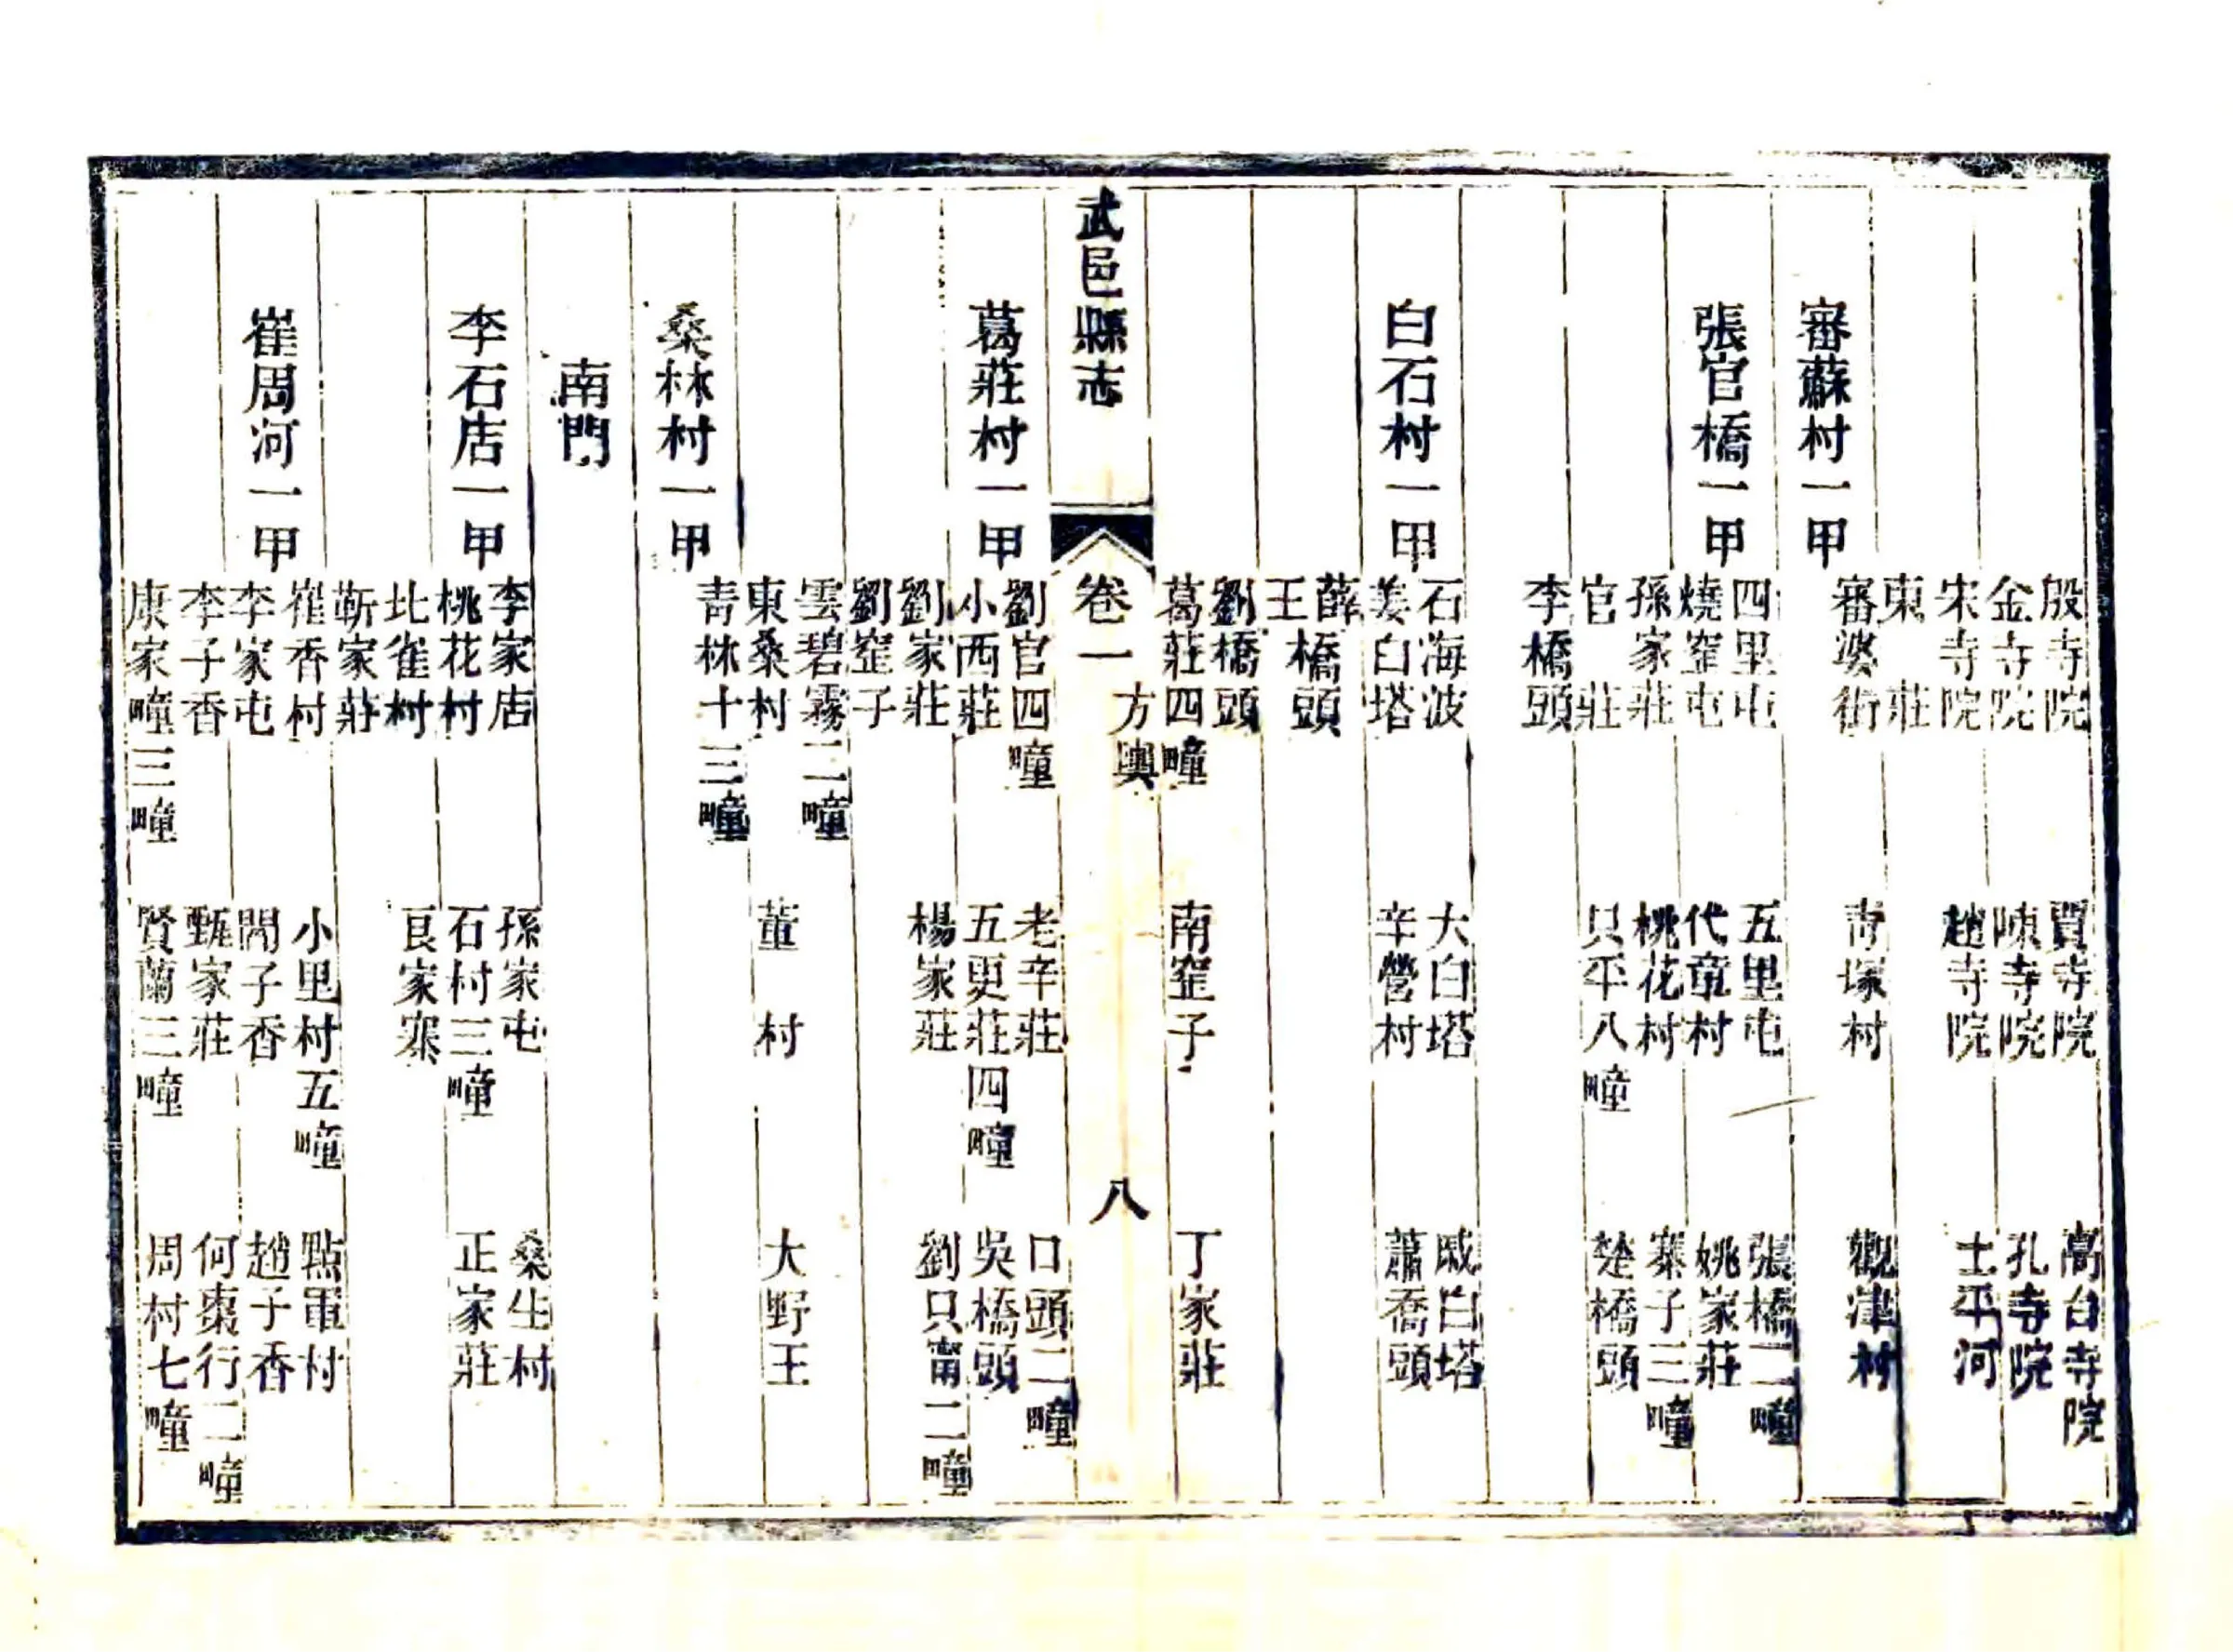 殷寺院　賈寺院　高台寺院
金寺院　陳寺院　孔寺院
宋寺院　趙寺院　士平河
東莊
審蘇村一甲
審婆街　青塚村　觀津村
張官橋一甲
四里屯　五里屯　張橋二疃
燒窑屯　代章村　姚家莊
孫家莊　桃花村　寨子三疃
官莊　只平八疃　楚橋頭
李橋頭
白石村一甲
石海波　大白塔　戚白塔
姜白塔　辛營村　蕭喬頭
薛王橋頭
劉橋頭
葛莊四疃　南窑子　丁家莊
武邑縣志　卷一　方輿　八
葛莊村一甲
劉官四疃　老辛莊　口頭二疃
小西莊　五更莊四疃　吳橋頭
劉家莊　楊家莊　劉只甯二疃
劉窑子
雲碧霧二疃
東桑村　董村　大野王
桑林村一甲
青林十三疃
南門
李石店一甲
李家店　孫家屯　桑生村
桃花村　石村三疃　正家莊
北雀村　良家寨
靳家莊
崔周河一甲
崔香村　小里村五疃　點軍村
李家屯　閆子香　趙子香
李子香　甄家莊　何棗行二疃
康家疃三疃　賢蘭三疃　周村七疃